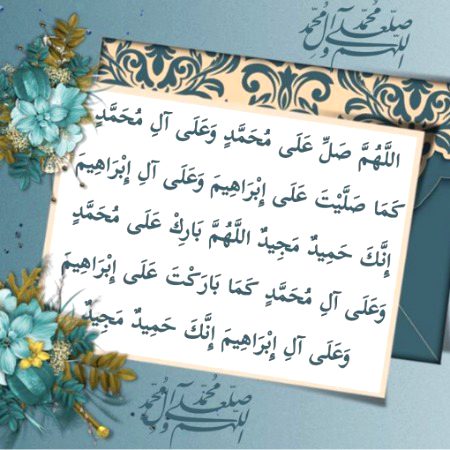 اللهم صل علی محمد و آل محمد
اللَّهُمَّ صَلِّ عَلَى مُحَمَّدٍ وَعَلَى آلِ مُحَمَّدٍ
كَمَا صَلَّيْتَ عَلَى إِبْرَاهِيمَ وَعَلَى آلِ إِبْرَاهِيمَ
إِنَّكَ حَمِيدٌ مَجِيدٌ اللَّهُمَّ بَارِكْ عَلَى مُحَمَّدٍ
وَعَلَى آلِ مُحَمَّدٍ كَمَا بَارَكْتَ عَلَى إِبْرَاهِيمَ
وَعَلَى آلِ إِبْرَاهِيمَ إِنَّكَ حَمِيدٌ مَجِيدٌ
اللهم صل علی محمد و آل محمد